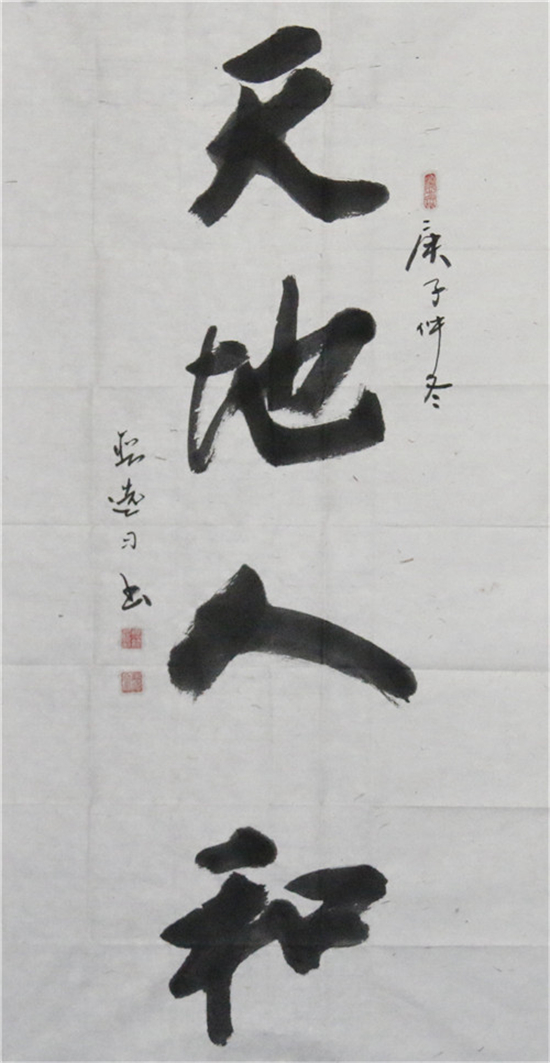 庚子仲冬
天地人和
远习书